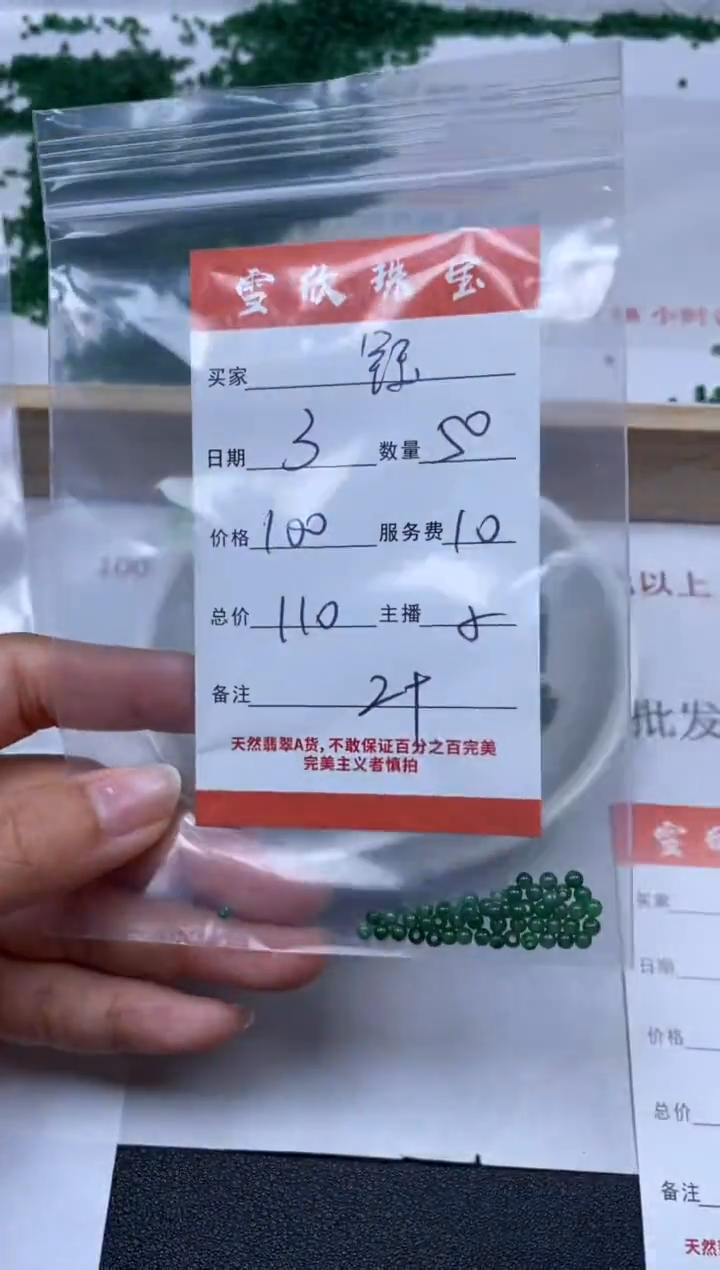 雪欣珠宝
买家
日期 3 数量 50
价格 100 服务费 10
总价 110 主播
备注 2+
天然翡翠A货,不敢保证百分之百完美
完美主义者慎拍
100
小时
以上
批发
雪
买家
日期
价格
总价
备注
天然